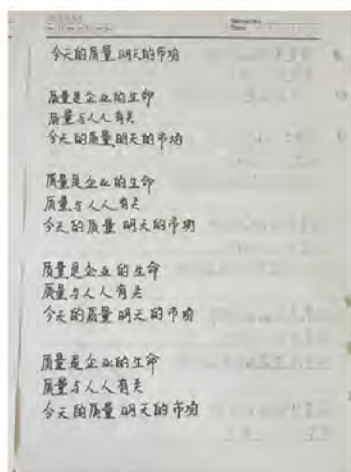 今天的质量 明天的市场
质量是企业的生命
质量与人人有关
今天的质量 明天的市场
质量是企业的生命
质量与人人有关
今天的质量 明天的市场
质量是企业的生命
质量与人人有关
今天的质量 明天的市场
质量是企业的生命
质量与人人有关
今天的质量 明天的市场